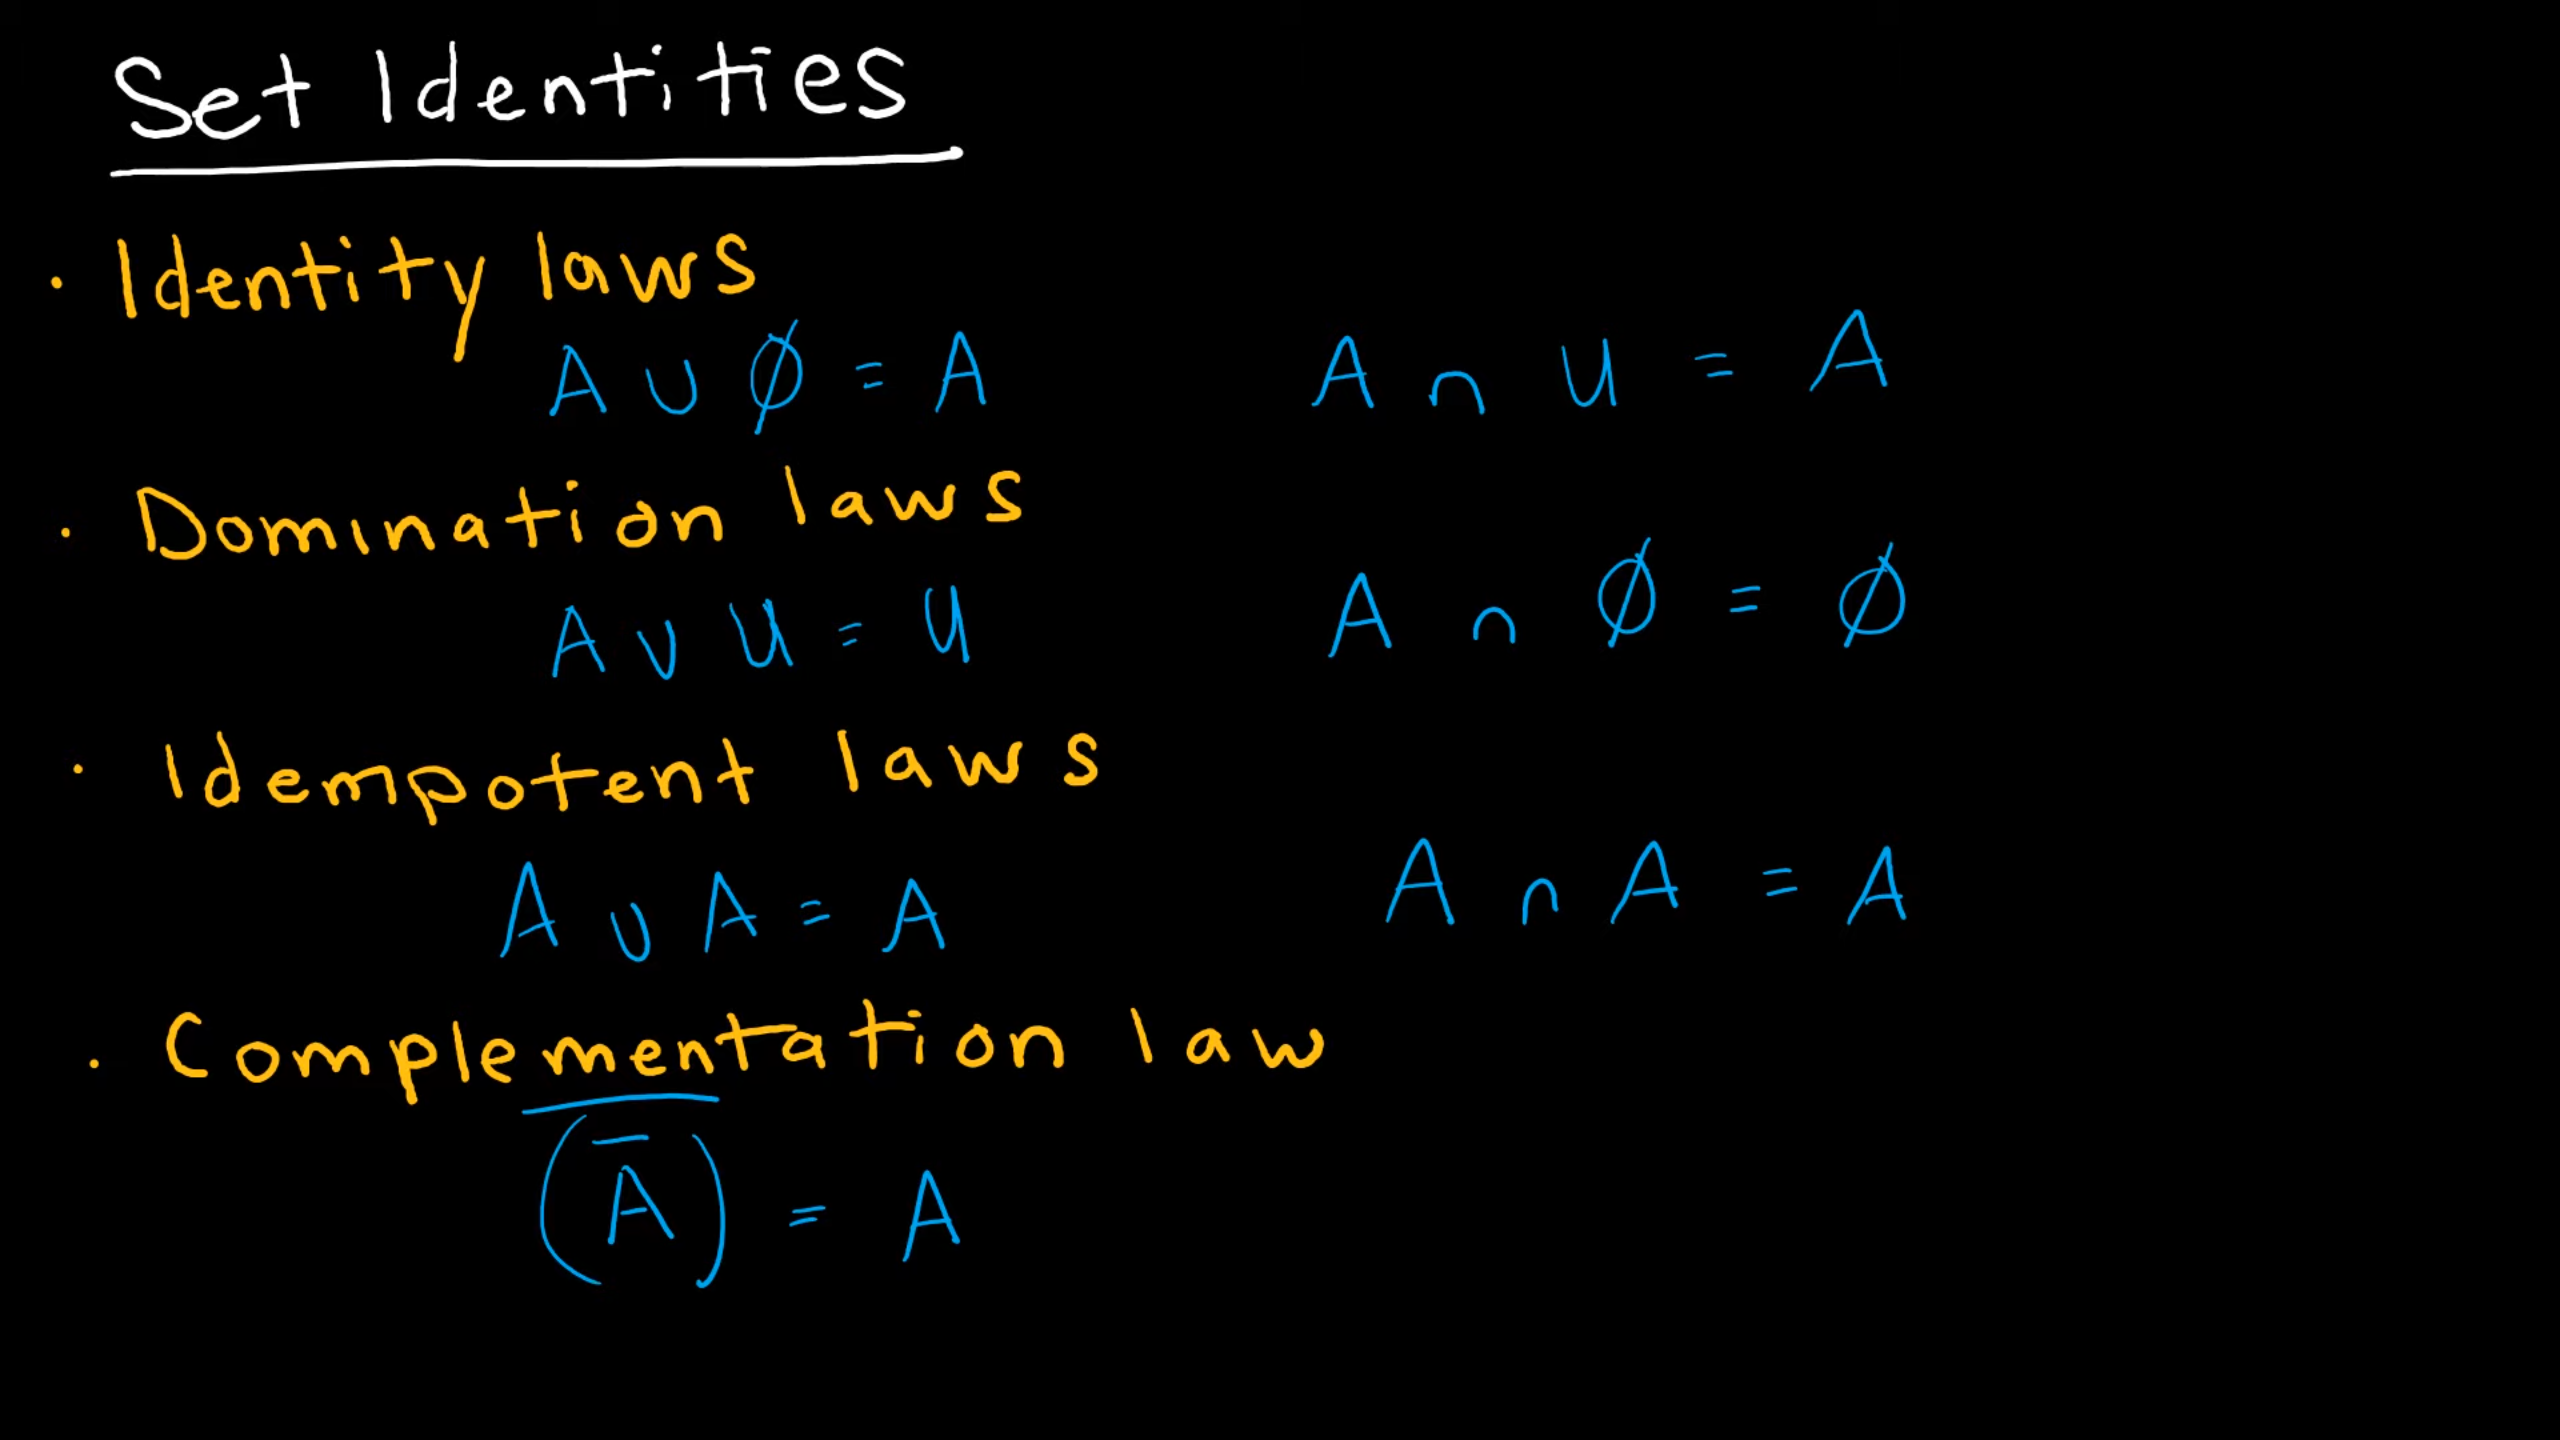 Set Identities
· Identity laws
A ∪ ∅ = A    A ∩ U = A
· Domination laws
A ∪ U = U    A ∩ ∅ = ∅
· Idempotent laws
A ∪ A = A    A ∩ A = A
· Complementation law
$\overline{(\overline{A})}$ = A